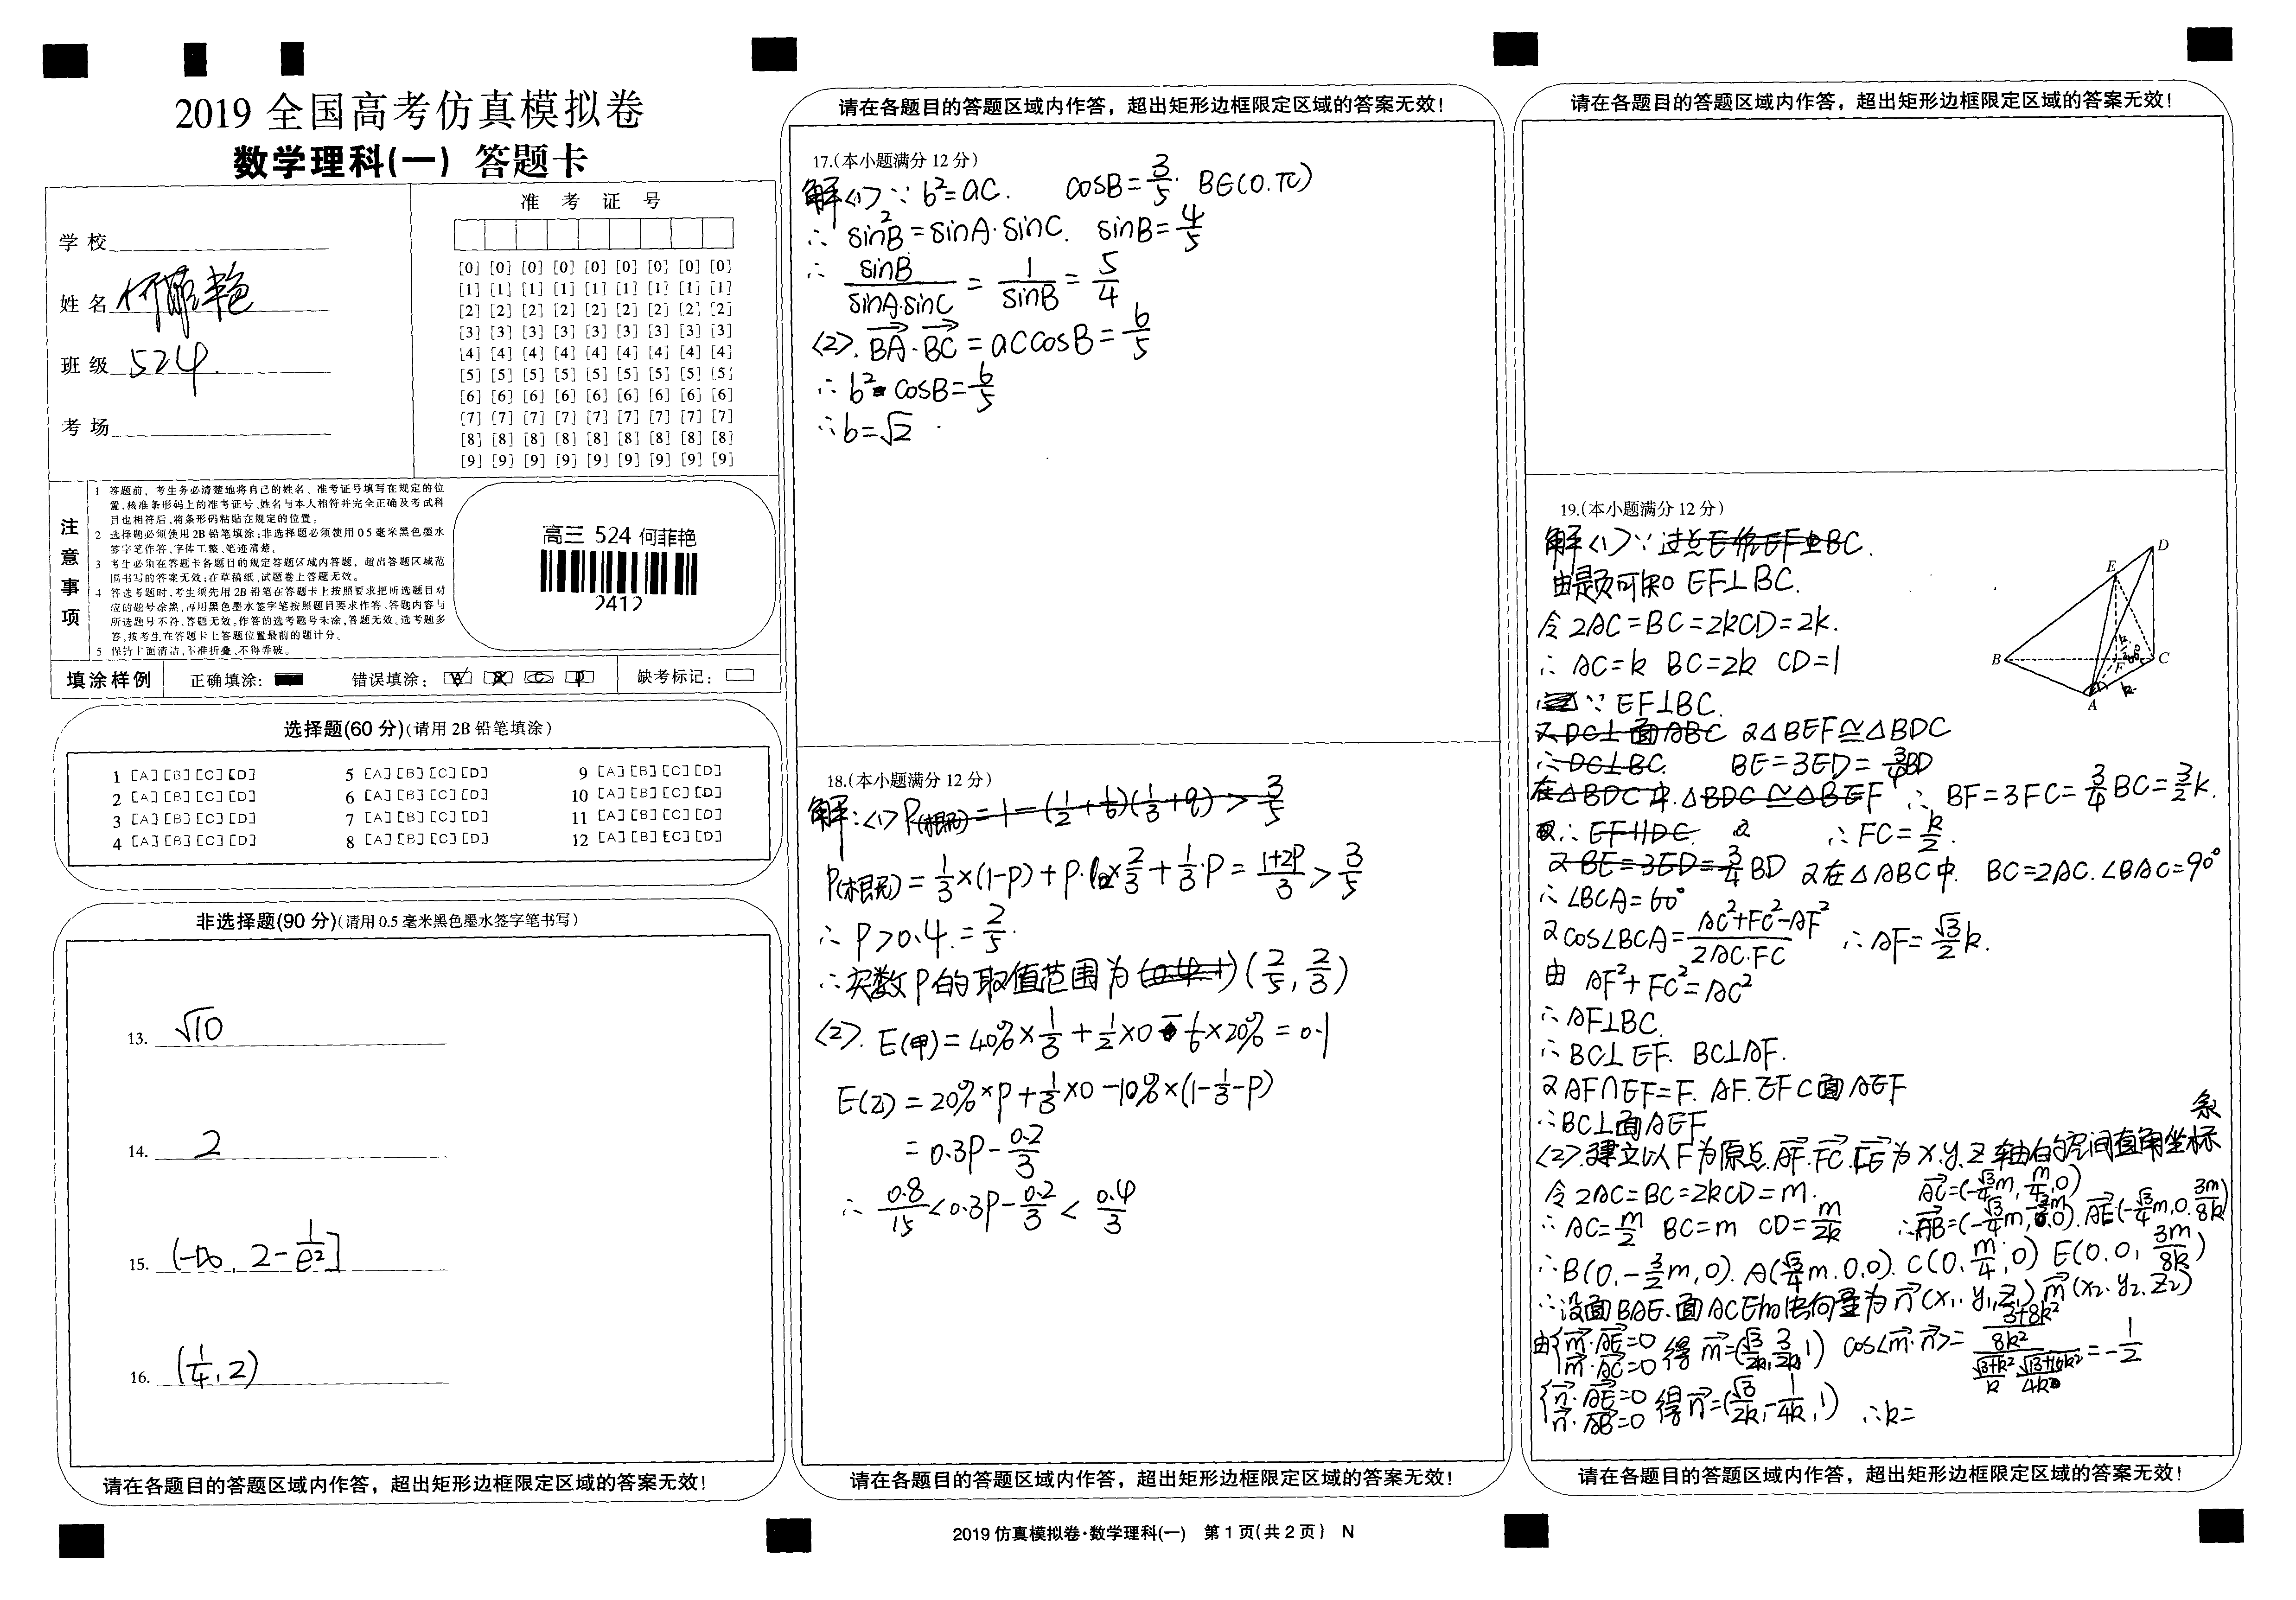 2019 全国高考仿真模拟卷
数学理科(一) 答题卡
学 校
姓 名 何菲艳
班 级 524
考 场
准 考 证 号
[0] [0] [0] [0] [0] [0] [0] [0] [0]
[1] [1] [1] [1] [1] [1] [1] [1] [1]
[2] [2] [2] [2] [2] [2] [2] [2] [2]
[3] [3] [3] [3] [3] [3] [3] [3] [3]
[4] [4] [4] [4] [4] [4] [4] [4] [4]
[5] [5] [5] [5] [5] [5] [5] [5] [5]
[6] [6] [6] [6] [6] [6] [6] [6] [6]
[7] [7] [7] [7] [7] [7] [7] [7] [7]
[8] [8] [8] [8] [8] [8] [8] [8] [8]
[9] [9] [9] [9] [9] [9] [9] [9] [9]
注意事项
1 答题前，考生务必清楚地将自己的姓名、准考证号填写在规定的位
置，核准条形码上的准考证号、姓名与本人相符并完全正确及考试科
目也相符后，将条形码粘贴在规定的位置。
2 选择题必须使用2B铅笔填涂；非选择题必须使用0 5毫米黑色墨水
签字笔作答，字体工整、笔迹清楚。
3 考生必须在答题卡各题目的规定答题区域内答题，超出答题区域范
围书写的答案无效；在草稿纸、试题卷上答题无效。
4 答选考题时，考生须先用2B铅笔在答题卡上按照要求把所选题目对
应的题号涂黑，再用黑色墨水签字笔按照题目要求作答。答题内容与
所选题号不符，答题无效。作答的选考题号未涂，答题无效。选考题多
答，按考生在答题卡上答题位置最前的题计分。
5 保持卡面清洁，不准折叠、不得弄破。
高三 524 何菲艳
2412
填涂样例 正确填涂： 错误填涂： 缺考标记：
选择题(60 分)(请用 2B 铅笔填涂)
1 [A] [B] [C] [D] 5 [A] [B] [C] [D] 9 [A] [B] [C] [D]
2 [A] [B] [C] [D] 6 [A] [B] [C] [D] 10 [A] [B] [C] [D]
3 [A] [B] [C] [D] 7 [A] [B] [C] [D] 11 [A] [B] [C] [D]
4 [A] [B] [C] [D] 8 [A] [B] [C] [D] 12 [A] [B] [C] [D]
非选择题(90 分)(请用 0.5 毫米黑色墨水签字笔书写)
13. √10
14. 2
15. (-∞, 2-1/e²]
16. (1/4, 2)
请在各题目的答题区域内作答，超出矩形边框限定区域的答案无效！
请在各题目的答题区域内作答，超出矩形边框限定区域的答案无效！
17.(本小题满分 12 分)
解<1>∵ b²=ac. cosB=3/5. B∈(0.π)
∴ sin²B=sinA·sinC. sinB=4/5
∴ sinB/(sinA·sinC) = 1/sinB = 5/4
<2>. BA·BC = accosB = 6/5
∴ b² cosB=6/5
∴b=√2.
18.(本小题满分 12 分)
解:<1>P(根无)=1-(1/2+1/6)(1/3+q)>3/5
P(根无)=1/3×(1-p)+p·×2/3+1/3·p=(1+2p)/3>3/5
∴ p>0.4.=2/5.
∴实数p的取值范围为 (2/5, 2/3)
<2>. E(甲)=40%×1/3+1/2×0-1/6×20%=0.1
E(乙)=20%×p+1/3×0-10%×(1-1/3-p)
=0.3p-0.2/3
∴ 0.8/15<0.3p-0.2/3<0.4/3
请在各题目的答题区域内作答，超出矩形边框限定区域的答案无效！
2019 仿真模拟卷·数学理科(一) 第 1 页(共 2 页) N
请在各题目的答题区域内作答，超出矩形边框限定区域的答案无效！
19.(本小题满分 12 分)
解<1>∵过点E作EF⊥BC.
由题可知 EF⊥BC.
令 2AC=BC=2kCD=2k.
∴ AC=k BC=2k CD=1
∵ EF⊥BC.
又DC⊥面ABC 又△BEF≅△BDC
∴DC⊥BC. BE=3ED=3/4BD
在△BDC中.△BDC≅△BEF ∴ BF=3FC=3/4BC=3/2k.
∴EF∥DC. ∴FC=k/2.
又BE=3ED=3/4BD 又在△ABC中. BC=2AC.∠BAC=90°
∴∠BCA=60°
又cos∠BCA=(AC²+FC²-AF²)/(2AC·FC) ∴AF=√3/2k.
由 AF²+FC²=AC²
∴AF⊥BC.
∴BC⊥EF. BC⊥AF.
又AF∩EF=F. AF.EF⊂面AEF
∴BC⊥面AEF
<2>.建立以F为原点.AF.FC.FE为x.y.z轴的空间直角坐标系
令2AC=BC=2kCD=m. AC=(-√3/4m, m/4, 0)
∴AC=m/2 BC=m CD=m/2k ∴AB=(-√3/4m, -3/4m, 0). AE(-√3/4m, 0. 3m/8k)
∴B(0,-3/2m,0). A(√3/4m.0.0). C(0,m/4,0) E(0.0,3m/8k)
∴设面BAE.面ACE的法向量为n(x₁.y₁,z₁) m(x₂.y₂.z₂)
由{m·AE=0 m·AC=0 得m=(√3/2k,3/2k,1) cos<m·n>=((3+8k²)/8k²)/(√(3+k²)/k·√(13+16k²)/4k)=-1/2
{n·AE=0 n·AB=0 得n=(√3/2k,-1/4k,1) ∴k=
D
E
B
F
C
A
k
60°
请在各题目的答题区域内作答，超出矩形边框限定区域的答案无效！